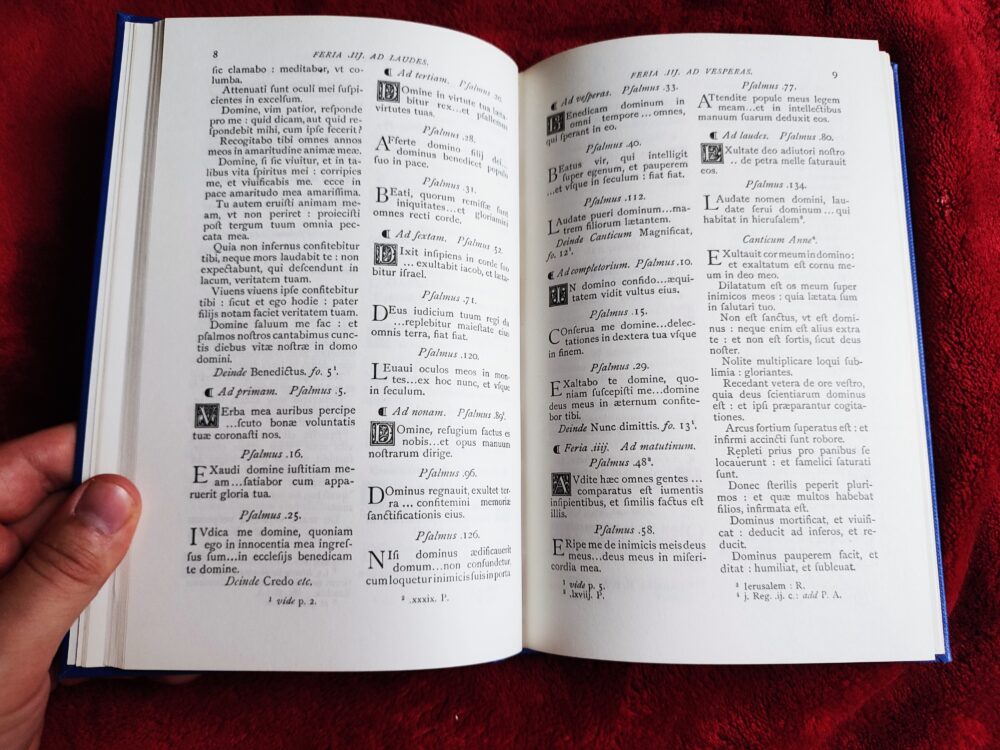 8
FERIA .IIJ. AD LAUDES.
ſic clamabo : meditabor, vt co-
lumba.
Attenuati ſunt oculi mei ſuſpi-
cientes in excelſum.
Domine, vim patior, reſponde
pro me : quid dicam, aut quid re-
ſpondebit mihi, cum ipſe fecerit?
Recogitabo tibi omnes annos
meos in amaritudine animæ meæ.
Domine, ſi ſic viuitur, et in ta-
libus vita ſpiritus mei : corripies
me, et viuificabis me. ecce in
pace amaritudo mea amariſſima.
Tu autem eruiſti animam me-
am, vt non periret : proieciſti
poſt tergum tuum omnia pec-
cata mea.
Quia non infernus confitebitur
tibi, neque mors laudabit te : non
expectabunt, qui deſcendunt in
lacum, veritatem tuam.
Viuens viuens ipſe confitebitur
tibi : ſicut et ego hodie : pater
filijs notam faciet veritatem tuam.
Domine ſaluum me fac : et
pſalmos noſtros cantabimus cunc-
tis diebus vitæ noſtræ in domo
domini.
Deinde Benedictus. fo. 5¹.
¶ Ad primam. Pſalmus .5.
VErba mea auribus percipe
...ſcuto bonæ voluntatis
tuæ coronaſti nos.
Pſalmus .16.
EXaudi domine iuſtitiam me-
am...ſatiabor cum appa-
ruerit gloria tua.
Pſalmus .25.
IVdica me domine, quoniam
ego in innocentia mea ingreſ-
ſus ſum...in eccleſijs benedicam
te domine.
Deinde Credo etc.
¹ vide p. 2.
¶ Ad tertiam. Pſalmus .20.
DOmine in virtute tua læta-
bitur rex...et pſallemus
virtutes tuas.
Pſalmus .28.
AFferte domino filij dei...
dominus benedicet populo
ſuo in pace.
Pſalmus .31.
BEati, quorum remiſſæ ſunt
iniquitates...et gloriamini
omnes recti corde.
¶ Ad ſextam. Pſalmus 52.
DIxit inſipiens in corde ſuo
... exultabit iacob, et læta-
bitur iſrael.
Pſalmus .71.
DEus iudicium tuum regi da
...replebitur maieſtate eius
omnis terra, fiat fiat.
Pſalmus .120.
LEuaui oculos meos in mon-
tes...ex hoc nunc, et vſque
in ſeculum.
¶ Ad nonam. Pſalmus .89.
DOmine, refugium factus es
nobis...et opus manuum
noſtrarum dirige.
Pſalmus .96.
DOminus regnauit, exultet ter-
ra ... confitemini memoriæ
ſanctificationis eius.
Pſalmus .126.
NIſi dominus ædificauerit
domum...non confundetur
cum loquetur inimicis ſuis in porta
² .xxxix. P.
FERIA .IIJ. AD VESPERAS.
9
¶ Ad veſperas. Pſalmus .33.
BEnedicam dominum in
omni tempore ... omnes,
qui ſperant in eo.
Pſalmus .40.
BEatus vir, qui intelligit
ſuper egenum, et pauperem
...et vſque in ſeculum : fiat fiat.
Pſalmus .112.
LAudate pueri dominum...ma-
trem filiorum lætantem.
Deinde Canticum Magnificat,
fo. 12¹.
¶ Ad completorium. Pſalmus .10.
IN domino confido...æqui-
tatem vidit vultus eius.
Pſalmus .15.
COnſerua me domine...delec-
tationes in dextera tua vſque
in finem.
Pſalmus .29.
EXaltabo te domine, quo-
niam ſuſcepiſti me...domine
deus meus in æternum confite-
bor tibi.
Deinde Nunc dimittis. fo. 13¹.
¶ Feria .iiij. Ad matutinum.
Pſalmus .48².
AVdite hæc omnes gentes ...
comparatus eſt iumentis
inſipientibus, et ſimilis factus eſt
illis.
Pſalmus .58.
ERipe me de inimicis meis deus
meus...deus meus in miſeri-
cordia mea.
¹ vide p. 5.
² .lxviij. P.
Pſalmus .77.
ATtendite popule meus legem
meam...et in intellectibus
manuum ſuarum deduxit eos.
¶ Ad laudes. Pſalmus .80.
EXultate deo adiutori noſtro
.. de petra melle ſaturauit
eos.
Pſalmus .134.
LAudate nomen domini, lau-
date ſerui dominum ... qui
habitat in hieruſalem³.
Canticum Anne⁴.
EXultauit cor meum in domino:
et exaltatum eſt cornu me-
um in deo meo.
Dilatatum eſt os meum ſuper
inimicos meos : quia lætata ſum
in ſalutari tuo.
Non eſt ſanctus, vt eſt domi-
nus : neque enim eſt alius extra
te : et non eſt fortis, ſicut deus
noſter.
Nolite multiplicare loqui ſub-
limia : gloriantes.
Recedant vetera de ore veſtro,
quia deus ſcientiarum dominus
eſt : et ipſi præparantur cogita-
tiones.
Arcus fortium ſuperatus eſt :
et infirmi accincti ſunt robore.
Repleti prius pro panibus ſe
locauerunt : et famelici ſaturati
ſunt.
Donec ſterilis peperit pluri-
mos : et quæ multos habebat
filios, infirmata eſt.
Dominus mortificat, et viuifi-
cat : deducit ad inferos, et re-
ducit.
Dominus pauperem facit, et
ditat : humiliat, et ſubleuat.
³ Ierusalem : R.
⁴ j. Reg. .ij. c : add P. A.